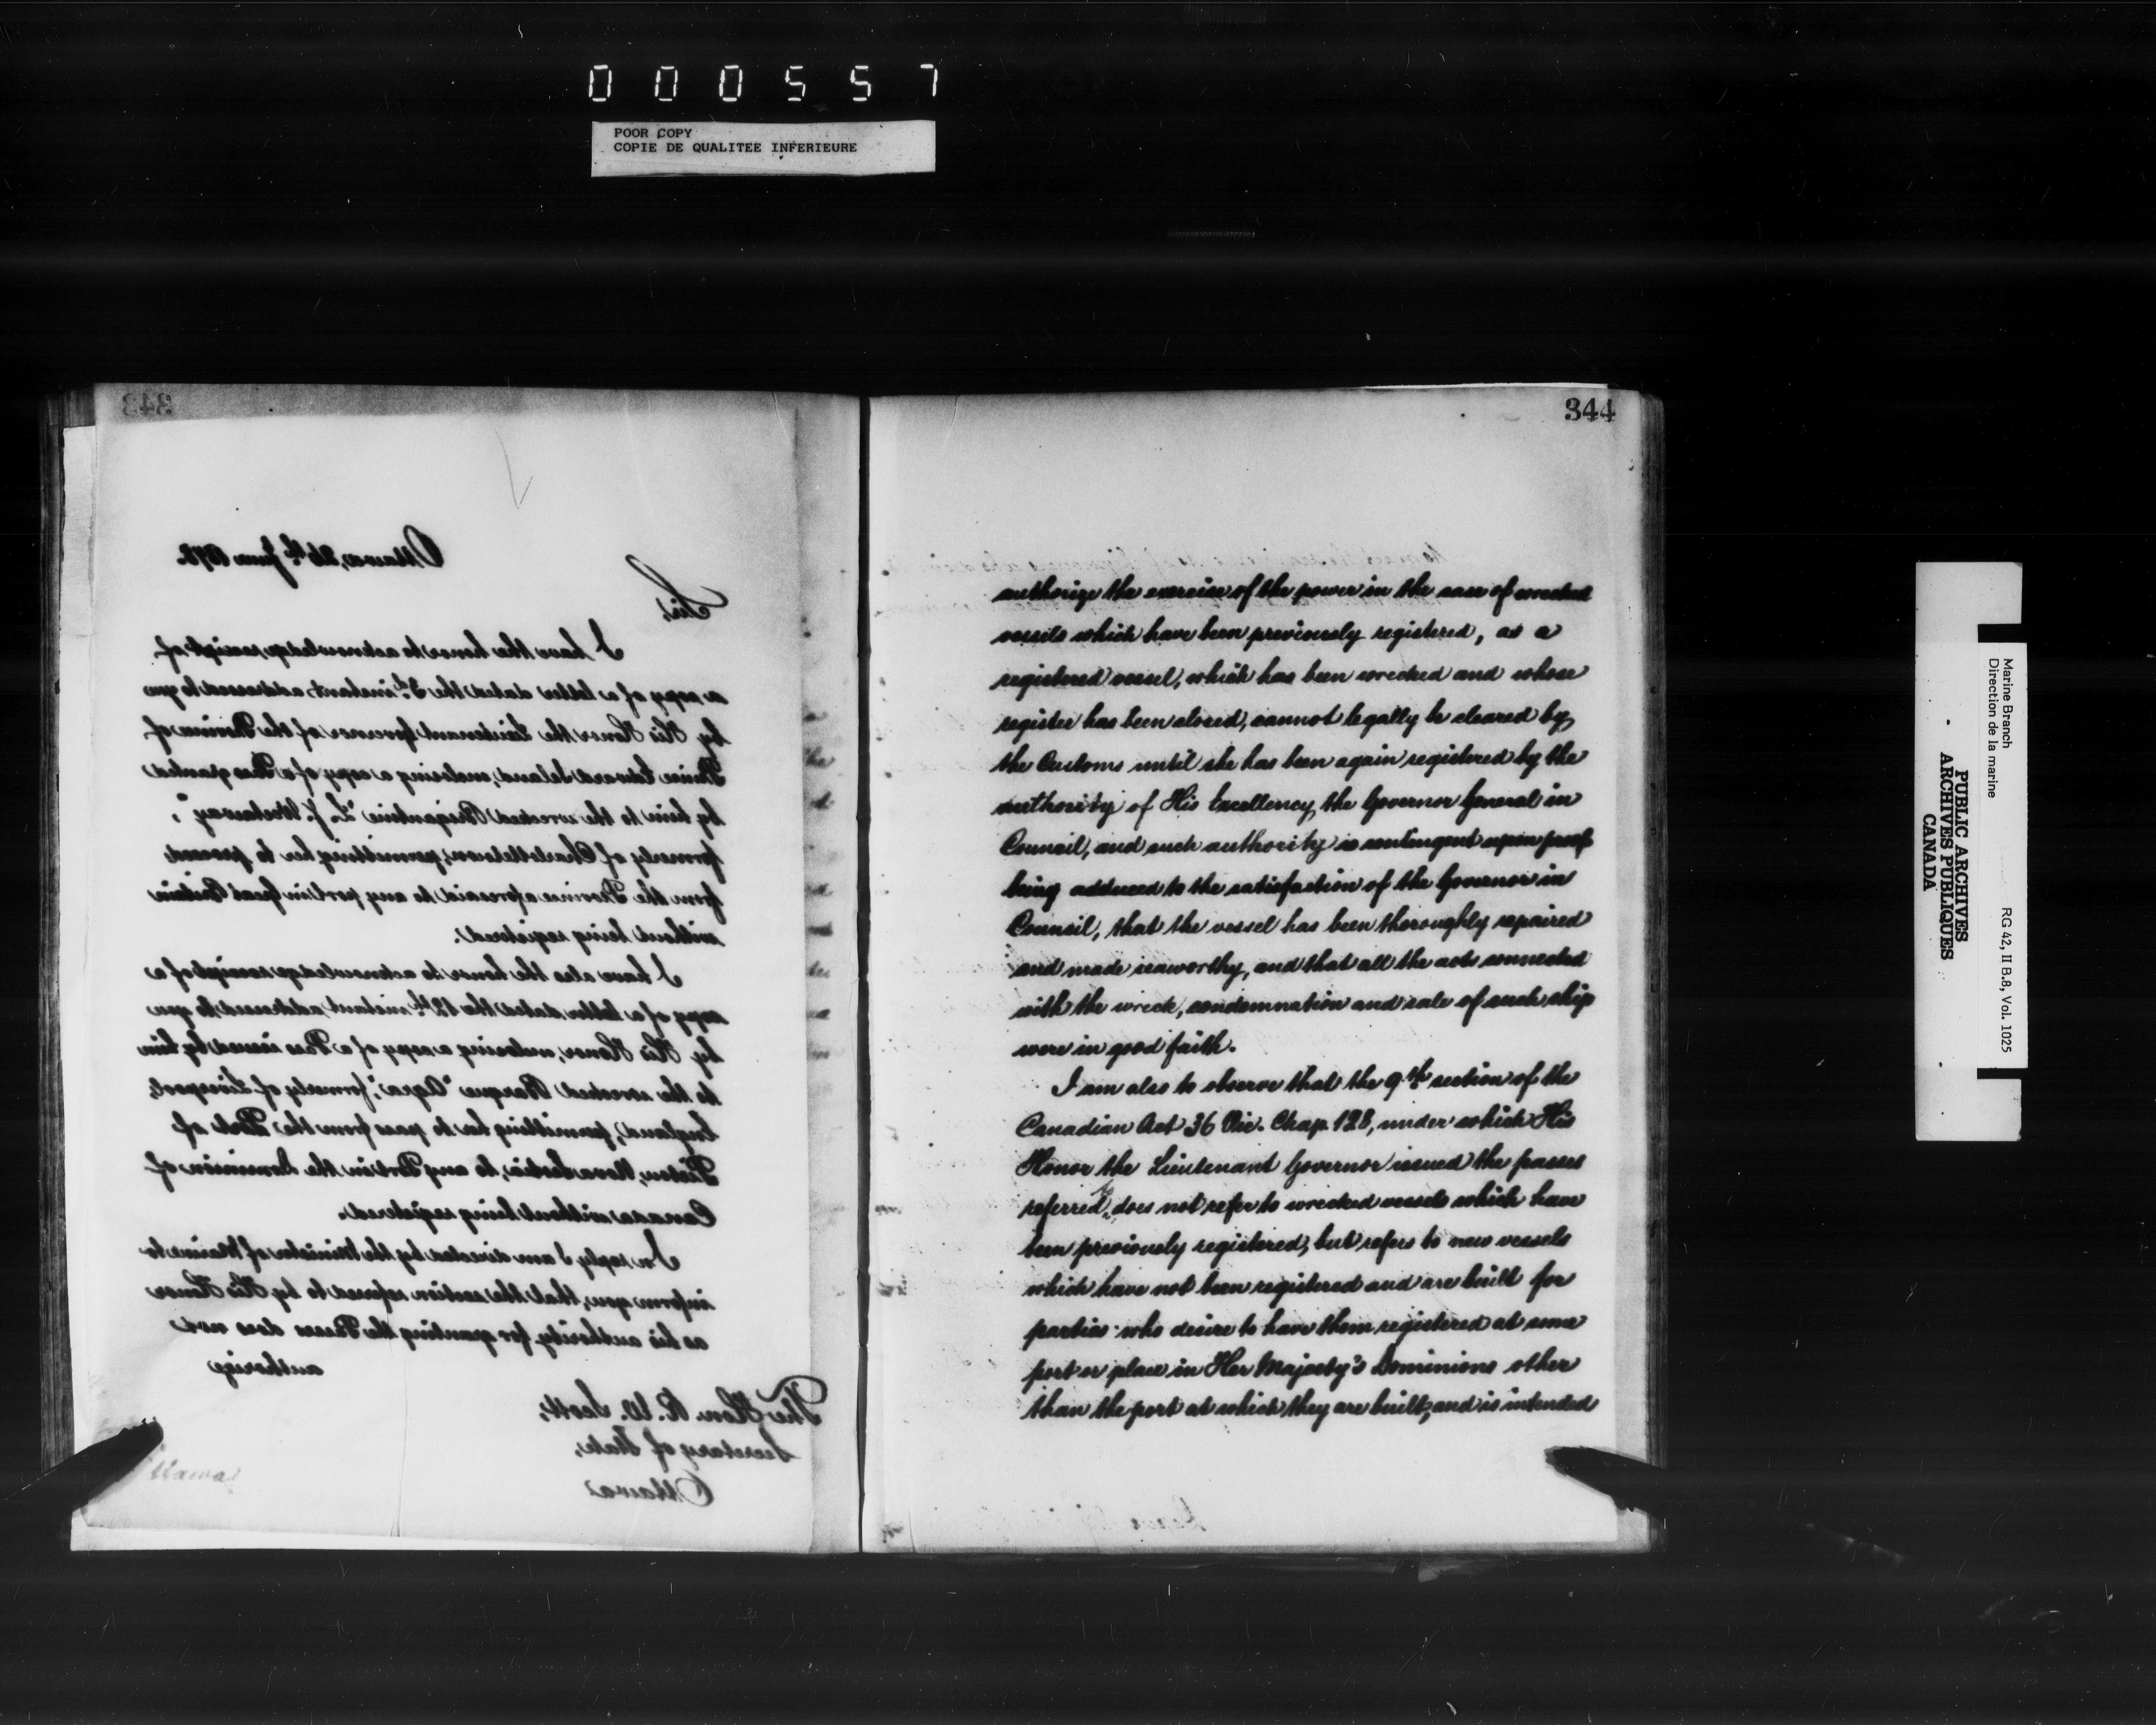 000557
POOR COPY
COPIE DE QUALITEE INFERIEURE
343
Ottawa, 26th June 1878.
Sir,
I have the honor to acknowledge receipt of
a copy of a letter dated the 3d. instant, addressed to you
by His Honor the Lieutenant Governor of the Province of
Prince Edward Island, enclosing a copy of a Pass granted
by him to the wrecked Brigantine "L. J. Westaway",
formerly of Charlottetown, permitting her to proceed
from the Province aforesaid to any port in Great Britain
without being registered.
I have also the honor to acknowledge receipt of a
copy of a letter dated the 12th instant addressed to you
by His Honor, enclosing a copy of a Pass issued by him
to the wrecked Barque "Agra", formerly of Liverpool,
England, permitting her to pass from the Port of
Pictou, Nova Scotia, to any Port in the Dominion of
Canada without being registered.
In reply I am directed by the Minister of Marine to
inform you, that the section referred to by His Honor
as his authority for granting the Passes does not
authorize
The Hon. R. W. Scott,
Secretary of State,
Ottawa
344
authorize the exercise of the power in the case of wrecked
vessels which have been previously registered, as a
registered vessel, which has been wrecked and whose
register has been closed, cannot legally be cleared by
the Customs until she has been again registered by the
authority of His Excellency, the Governor General in
Council, and such authority is contingent upon proof
being adduced to the satisfaction of the Governor in
Council, that the vessel has been thoroughly repaired
and made seaworthy, and that all the acts connected
with the wreck, condemnation and sale of such ship
were in good faith.
I am also to observe that the 9th section of the
Canadian Act 36 Vic. Chap. 128, under which His
Honor the Lieutenant Governor issued the passes
referred to, does not refer to wrecked vessels which have
been previously registered, but refers to new vessels
which have not been registered and are built for
parties who desire to have them registered at some
port or place in Her Majesty's Dominions other
than the port at which they are built, and is intended
Marine Branch
Direction de la marine
RG 42, II B.8, Vol. 1025
PUBLIC ARCHIVES
ARCHIVES PUBLIQUES
CANADA